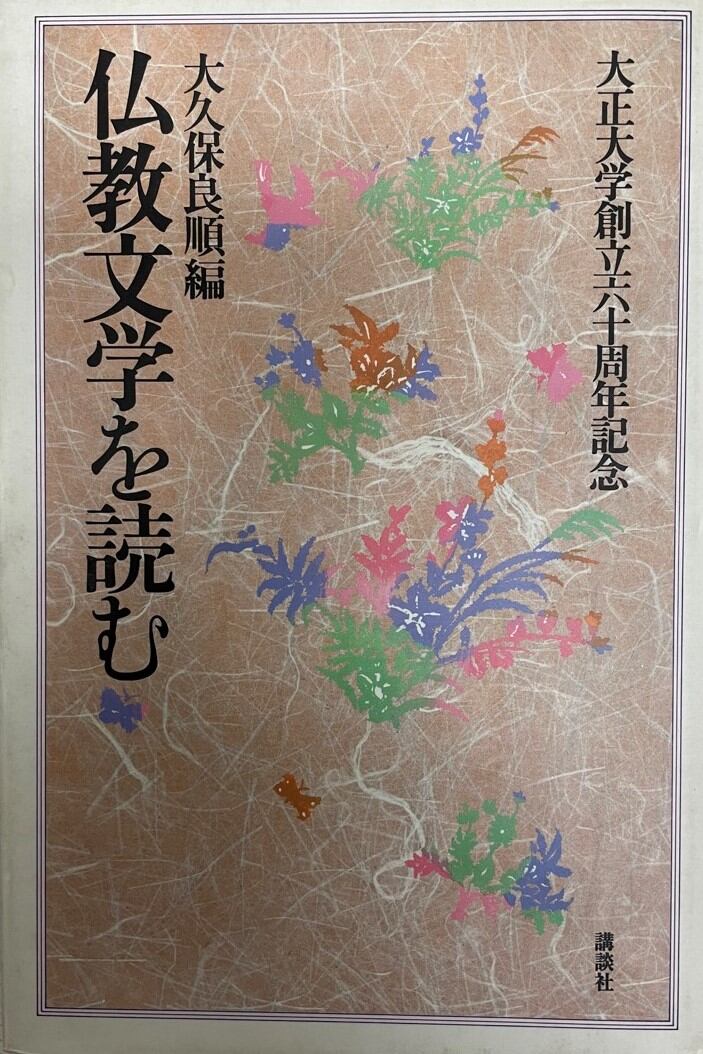 大正大学創立六十周年記念
大久保良順編
仏教文学を読む
講談社